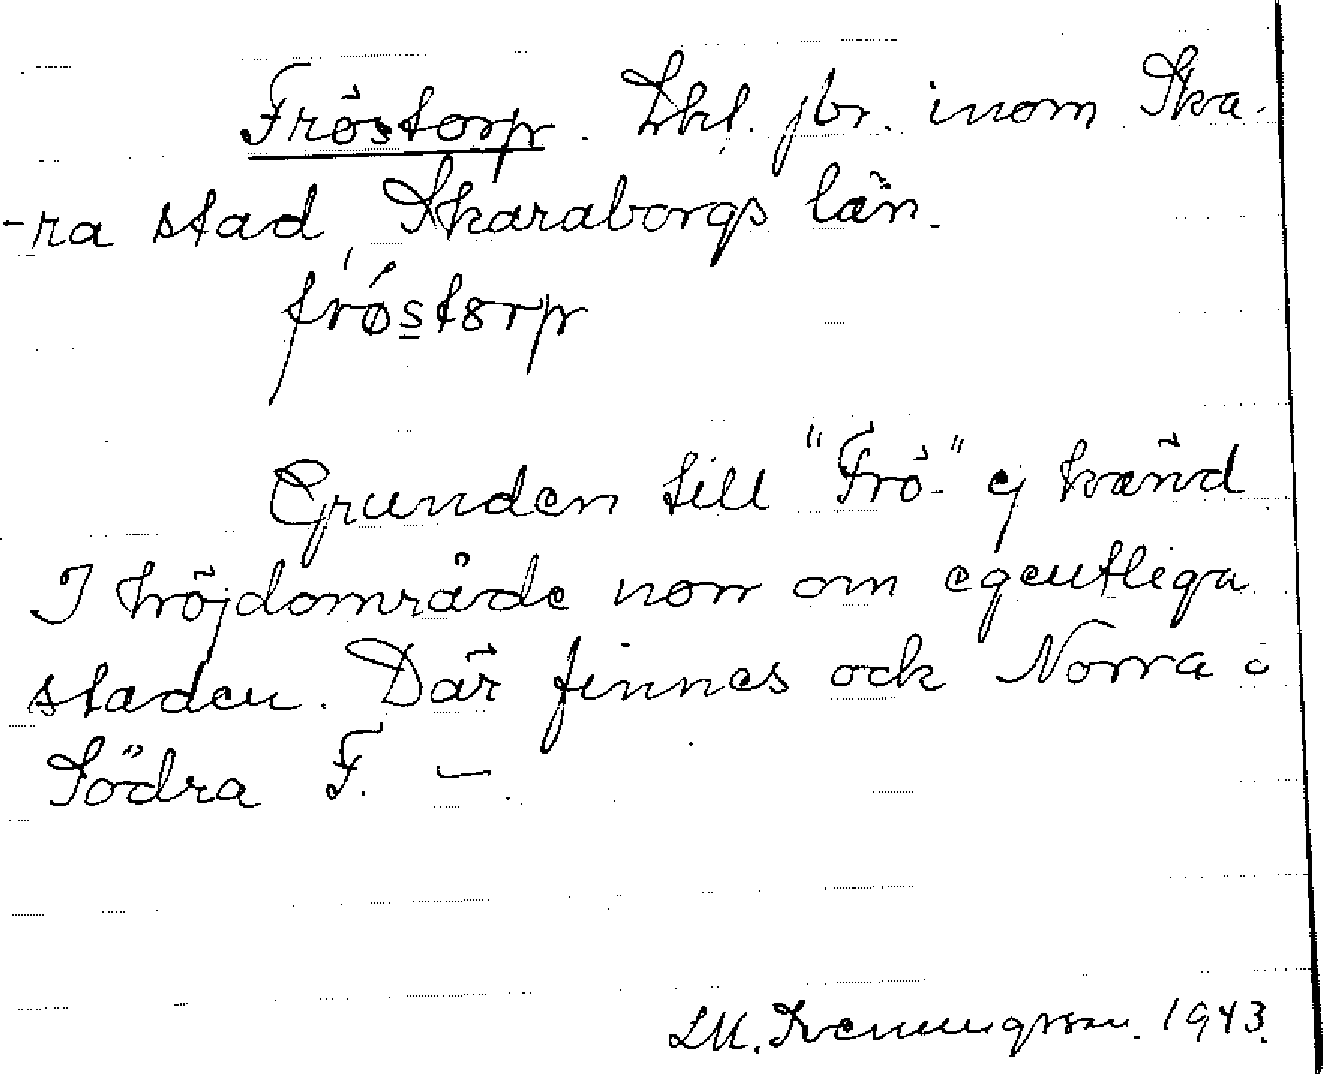 Fröstorp. Lkl. jbr. inom Ska-
-ra stad, Skaraborgs län.
frøstorp
Grunden till "Frö-" ej känd
I höjdområde norr om egentliga
staden. Där finnes ock Norra o
Södra F. —.
L.M. Svenungsson. 1943.